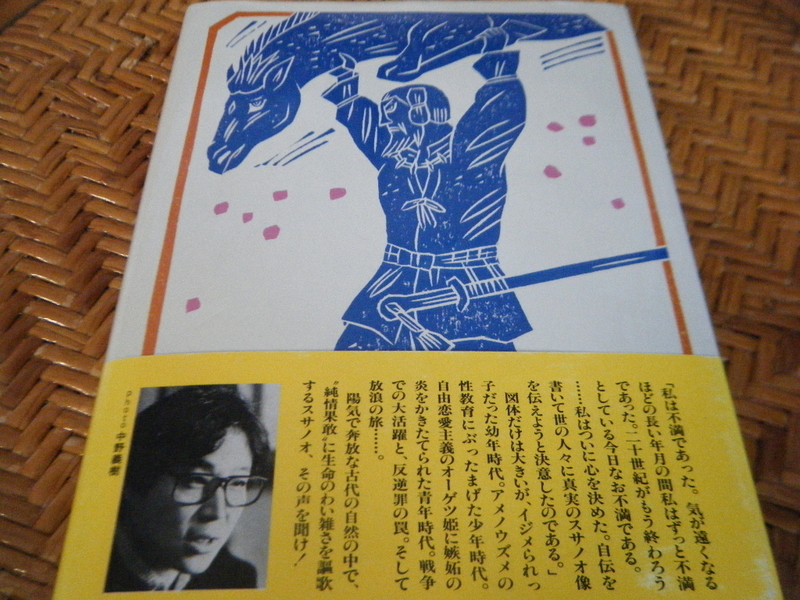 「私は不満であった。気が遠くなる
ほどの長い年月の間私はずっと不満
であった。二十世紀がもう終わろう
としている今日なお不満である。
……私はついに心を決めた。自伝を
書いて世の人々に真実のスサノオ像
を伝えようと決意したのである。」
図体だけは大きいが、イジメられっ
子だった幼年時代。アメノウズメの
性教育にぶったまげた少年時代。
自由恋愛主義のオーゲツ姫に嫉妬の
炎をかきたてられた青年時代。戦争
での大活躍と、反逆罪の罠。そして
放浪の旅……。
陽気で奔放な古代の自然の中で、
“純情果敢”に生命のわい雑さを謳歌
するスサノオ、その声を聞け！
photo 中野義樹